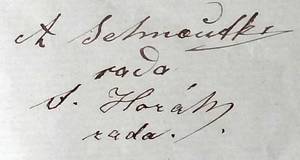 A Schmoutk
rada
J. Horák
rada.